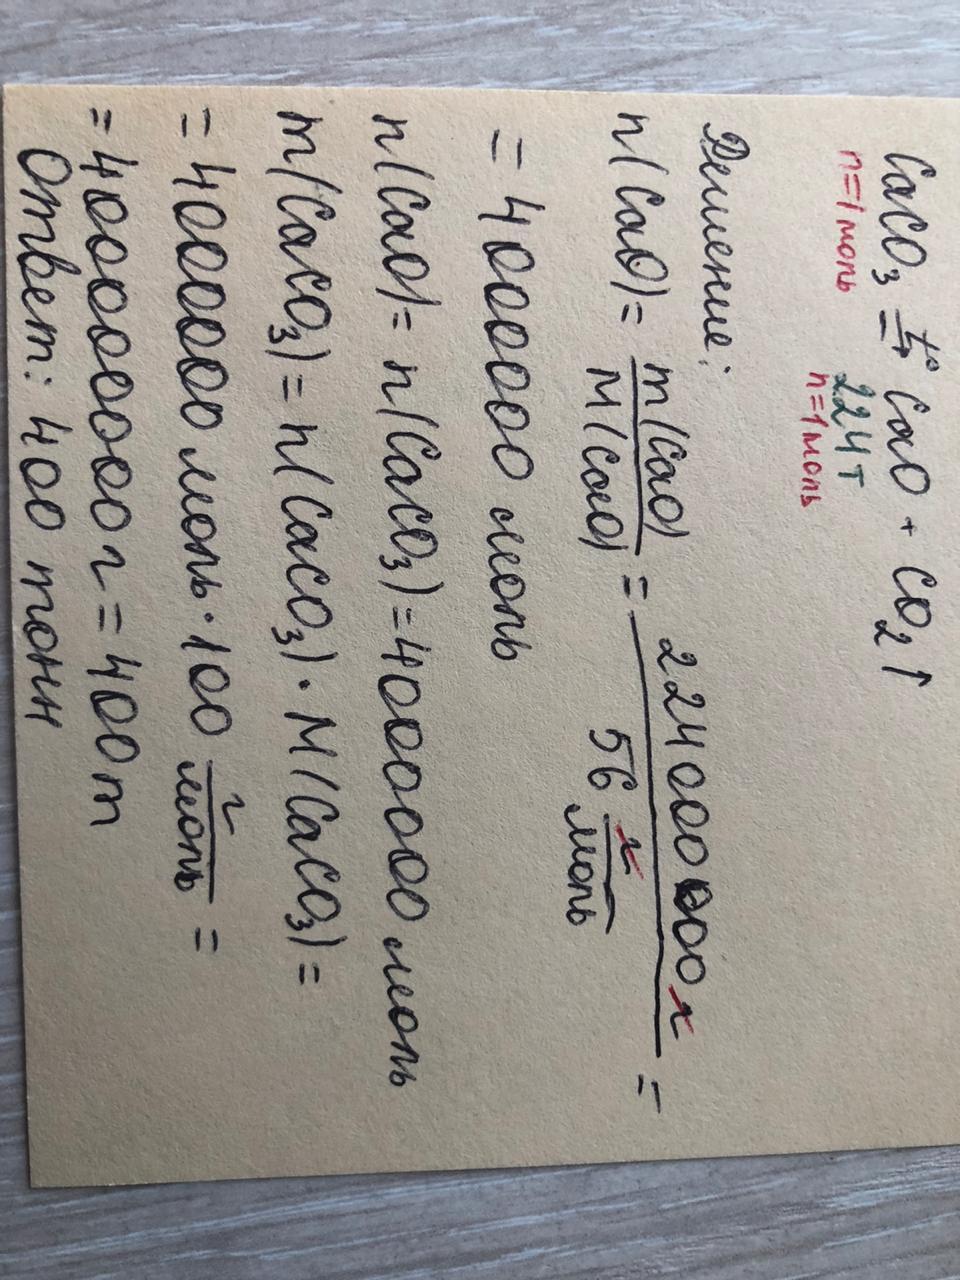 CaCO₃ =t°→ CaO + CO₂↑
n=1моль 224т
n=1моль
Решение:
n(CaO) = m(CaO) / M(CaO) = 224000000г / 56 г/моль =
= 4000000 моль
n(CaO) = n(CaCO₃) = 4000000 моль
m(CaCO₃) = n(CaCO₃) · M(CaCO₃) =
= 4000000 моль · 100 г/моль =
= 400000000 г = 400т
Ответ: 400 тонн